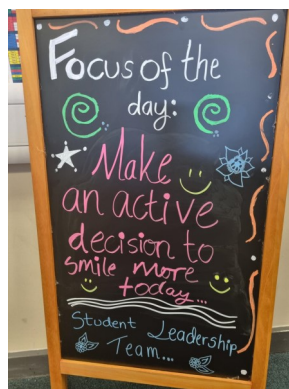 Focus of the
day:
Make
an active
decision to
smile more
today...
Student Leadership
Team...